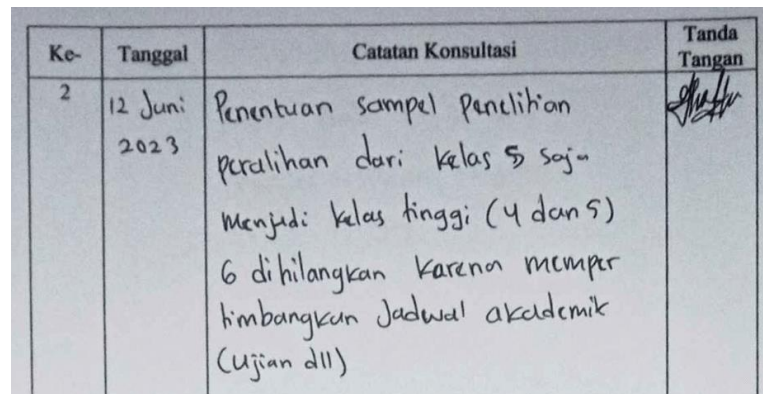 Ke- Tanggal Catatan Konsultasi Tanda Tangan
2 12 Juni 2023
Penentuan sampel penelitian
peralihan dari kelas 5 saja
menjadi kelas tinggi (4 dan 5)
6 dihilangkan karena memper
timbangkan Jadwal akademik
(Ujian dll)